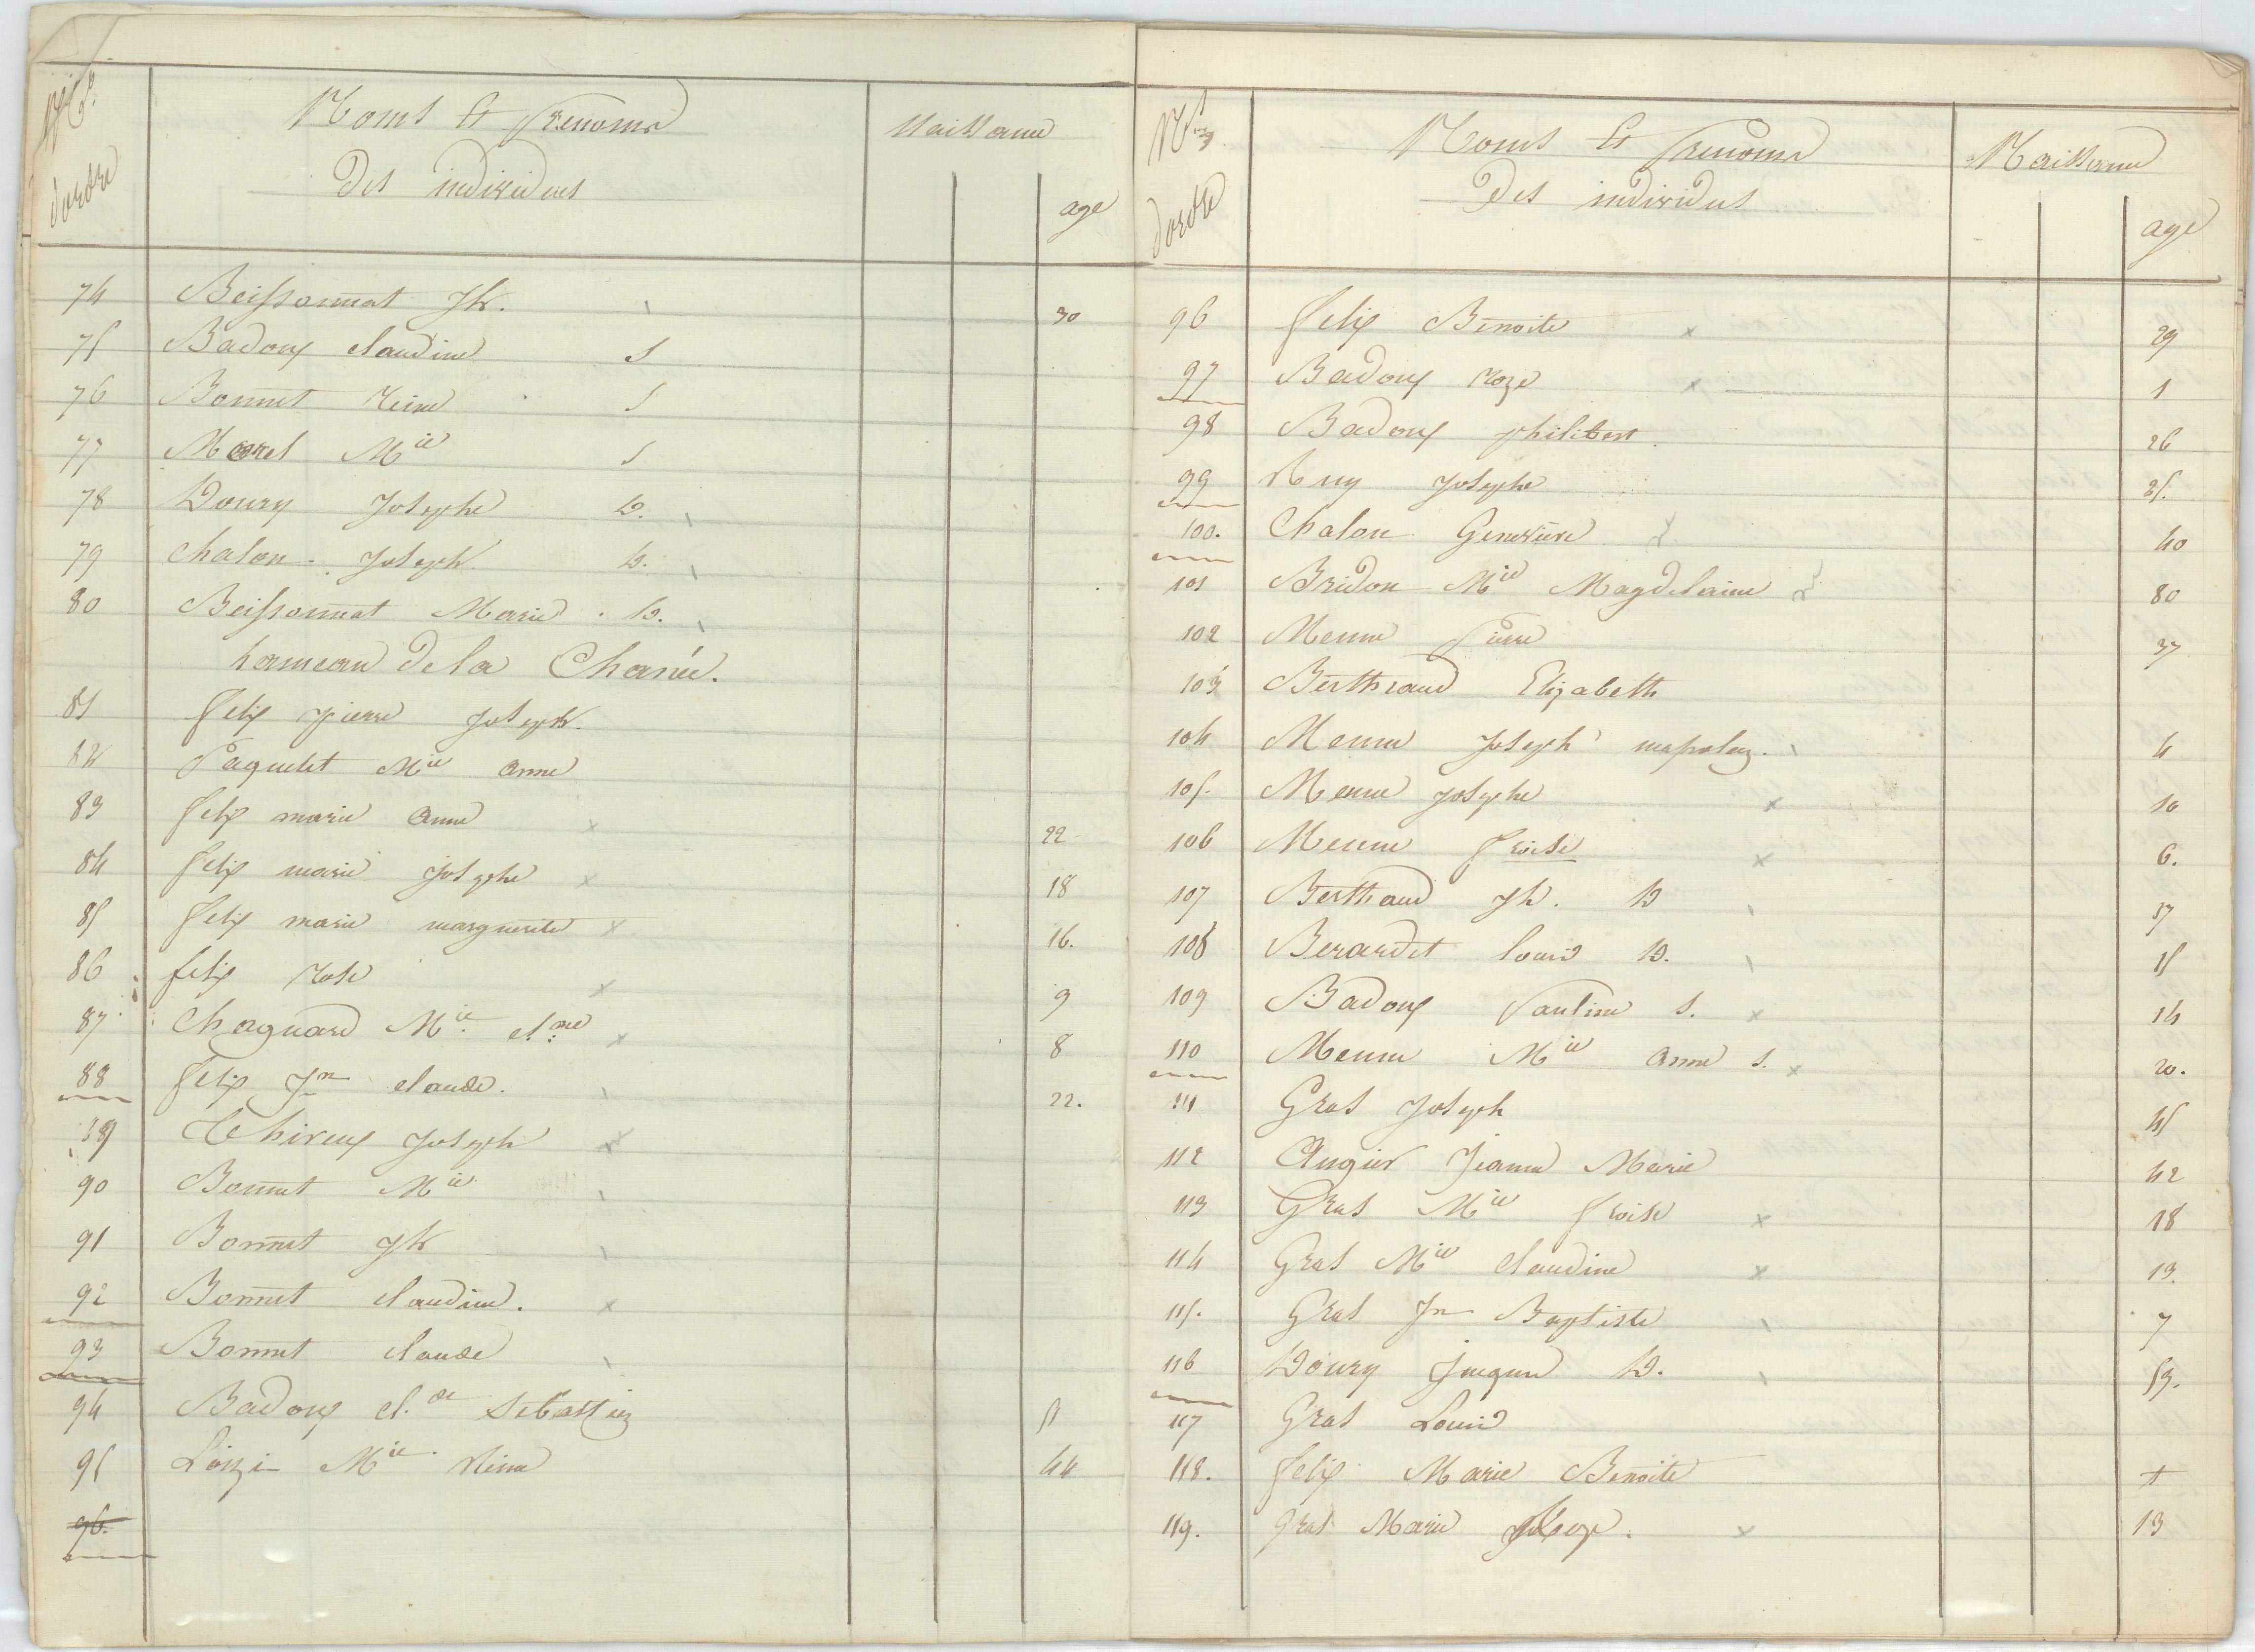 Nos dordre Noms Et Prenoms Naissance
Des individus age
74 Beissonnat Jh. 30
75 Badoux claudine S
76 Bonnet Reine S
77 Morel Mie S
78 Doury Josephe D.
79 Chalon Joseph D.
80 Beissonnat Marie D.
hameau De la Chanée.
81 felix pierre Joseph.
82 Paquelet Mie anne
83 felix marie anne x 22
84 felix marie Josephe x 18
85 felix marie marguerite x 16.
86 felix Rose x 9
87 Chagnard Mie cl.ne x 8
88 felix Jn claude. 22.
89 Thireux Joseph x
90 Bonnet Mie
91 Bonnet Jh
92 Bonnet claudine. x
93 Bonnet claude
94 Badoux cl.de Sebastien 51
95 Mie Reine 44
96.
Nos dordre Noms Et Prenoms Naissance
Des individus age
96 felix Benoite x 29
97 Badoux roze x 1
98 Badoux philibert. 26
99 Ruy Josephe 25.
100. Chalon Genevieve x 40
101 Bridon Mie Magdelaine 80
102 Menne Pierre 37
103 Berthraud Elizabeth
104 Menne Joseph napoleon. 4
105. Menne Josephe x 10
106 Menne froise x 6.
107 Berthaud Jh. D 17
108 Berardet louis D. 15
109 Badoux Pauline S. x 14
110 Menne Mie anne S. x 20.
111 Gras Joseph 45
112 Augier Jeanne Marie 42
113 Gras Mie froise x 18
114 Gras Mie Claudine x 13.
115. Gras Jn Baptiste 7
116 Doury Jacques D. 59.
117 Gras Louis
118. felix Marie Benoite
119. Gras Marie x 13